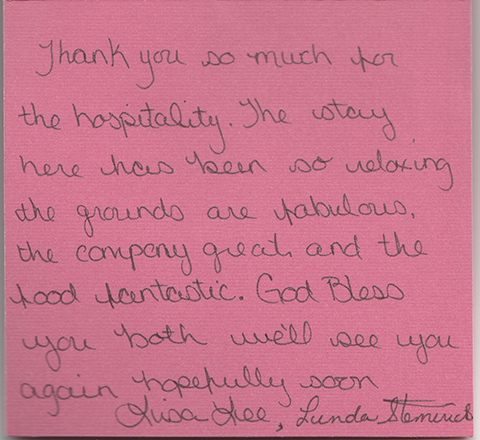 Thank you so much for
the hospitality. The stay
here has been so relaxing
the grounds are fabulous,
the company great, and the
food fantastic. God Bless
you both we'll see you
again hopefully soon
Lisa Lee, Lunda